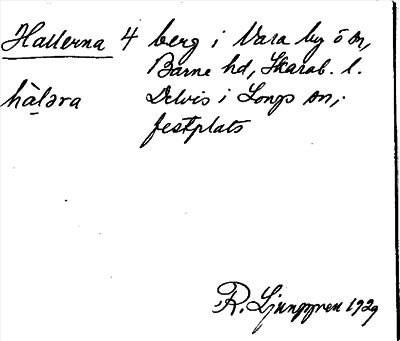 Hallerna 4 berg i Vara by ö sn,
Barne hd, Skarab. l.
hàləra Delvis i Longs sn;
festplats
R. Ljunggren 1929